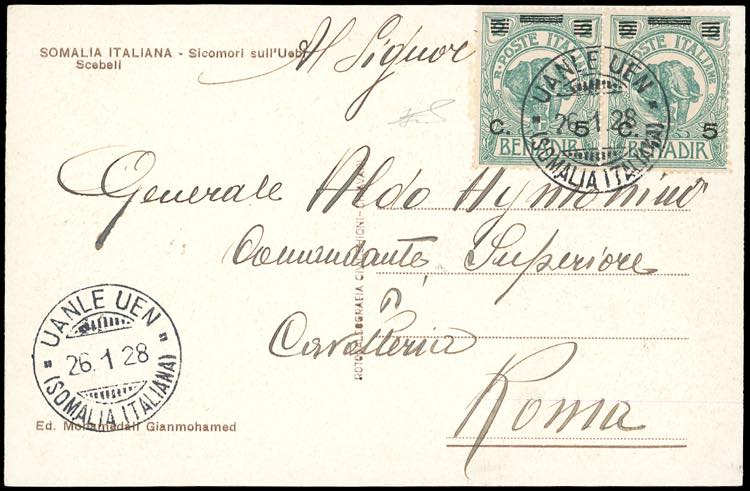 SOMALIA ITALIANA - Sicomori sull'Uebi
Scebeli
Al Signor
R. POSTE ITALIANE
C. 5
BENADIR
R. POSTE ITALIANE
C. 5
BENADIR
UANLE UEN
26.1.28
(SOMALIA ITALIANA)
Generale Aldo Aymonino
Comandante Superiore
Cavalleria
Roma
UANLE UEN
26.1.28
(SOMALIA ITALIANA)
Ed. Mohamedali Gianmohamed